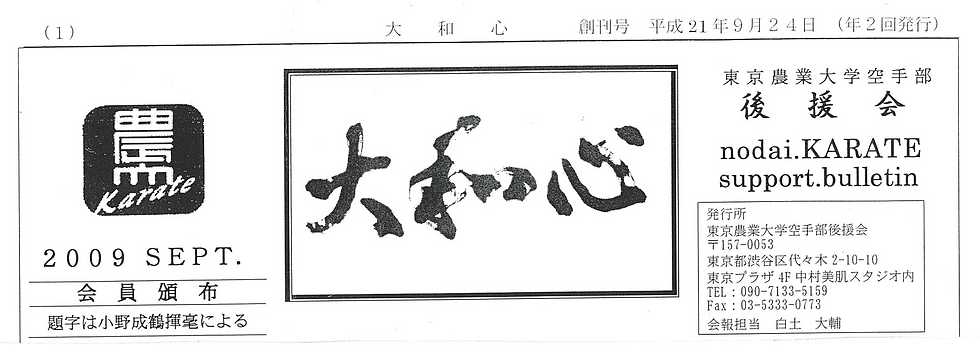 (1) 大 和 心 創刊号 平成21年9月24日 (年2回発行)
農大
Karate
2009 SEPT.
会 員 頒 布
題字は小野成鶴揮毫による
大和心
東京農業大学空手部
後 援 会
nodai.KARATE
support.bulletin
発行所
東京農業大学空手部後援会
〒157-0053
東京都渋谷区代々木 2-10-10
東京プラザ 4F 中村美肌スタジオ内
TEL：090-7133-5159
Fax：03-5333-0773
会報担当 白土 大輔